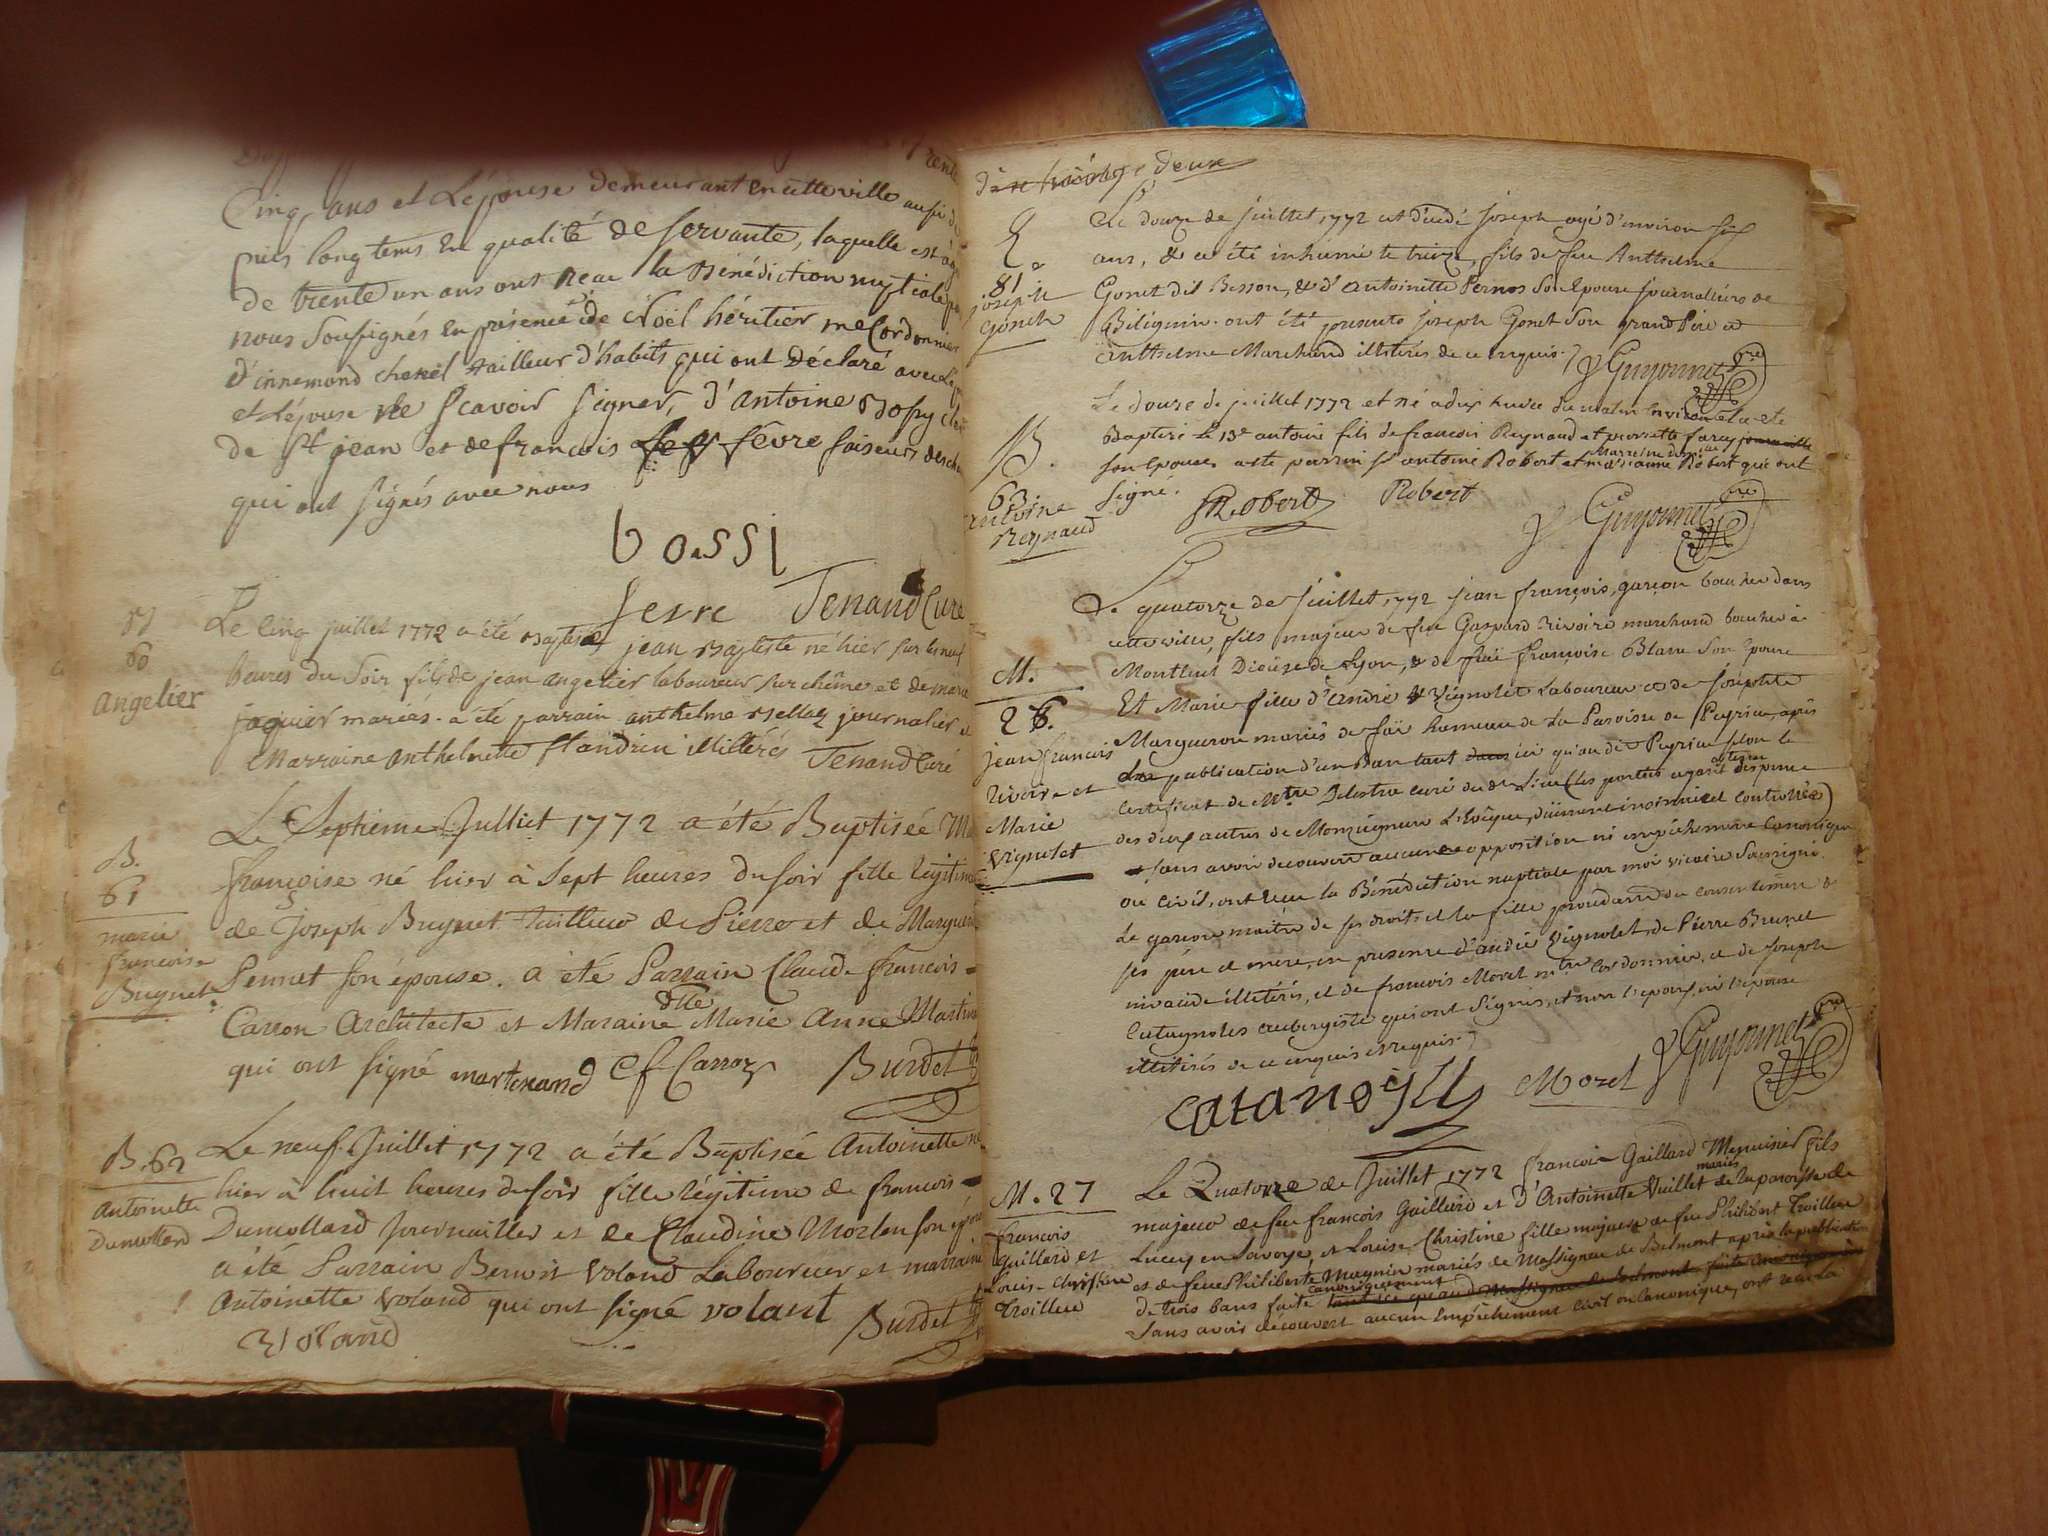 Cinq ans et L'épouse demeurant en cette ville aussi de
puis long tems en qualité de servante, laquelle est âg
de trente un ans ont recu la Bénédiction nuptiale p
nous soussignés en présence de Noël héritier me Cordonnier
d'innemond chenel tailleur d'habits qui ont déclaré avec L'ep
et L'épouse ne scavoir signer, d'antoine Bossy cle
de St jean et de francois fevre faiseurs de
qui ont signés avec nous
bossi
fevre Tenand Curé
B
60
Angelier
Le cinq juillet 1772 a été Baptisé jean Baptiste né hier sur les neuf
heures du Soir fils de jean angelier laboureur sur chêmes et de marie
jaquier mariés. a été parrain anthelme Bellaz journalier et
Marraine anthelmette flandrin illitérés Tenand Curé
B.
61
marie
francoise
Bugnet
Le Septieme Julliet 1772 a été Baptisée Ma
françoise né hier à Sept heures du soir fille legitime
de Joseph Bugnet Tailleur de Pierre et de Margueri
Pernet son épouse. a été Parrain Claude francois
Carron Architecte et Maraine dlle Marie Anne Martin
qui ont signé martenand C f Carron Burdet
B. 62
Antoinette
Dumollard
Le neuf Juillet 1772 a été Baptisée Antoinette né
hier à huit heures du soir fille légitime de francois
Dumollard Journailler et de Claudine Morlon son épou
a été Parrain Benoit Voland Laboureur et marraine
Antoinette Voland qui ont signé volant
Voland Burdet
trente deux
S.
81
joseph
Gonet
Le douze de Juillet 1772 est décédé Joseph agé d'environ six
ans, & a été inhumé le treize, fils de feu Anthelme
Gonet dit Besson, & d'Antoinette Pernos son Epouse journaliers de
Bilignin. ont été presents Joseph Gonet son grand Pere et
Anthelme Marchand illitérés de ce enquis. Guyonnet vre
B.
63
antoine
Reynaud
Le douze de juillet 1772 est né a dix heures du matin environ et a été
Baptisé le 13e antoine fils de francois Reynaud et pierrette farcy
son Epouse a été parrin sr antoine Robert et marraine demoiselle marianne Robert qui ont
signé. Robert Robert Guyonnet vre
M.
26.
jean francois
Rivoire et
Marie
Vignolet
Le quatorze de Juillet 1772 jean françois, garçon boucher dans
cette ville, fils majeur de feu Gaspard Rivoire marchand boucher à
Montluel Diocèse de Lyon, & de feüe françoise Blanc son Epouse
Et Marie fille d'andré Vignolet Laboureur et de Josephte
Margueron mariés de faï hameau de La Paroisse de Peyrieu, après
la publication d'un Ban tant ici qu'au dit Peyrieu selon le
certificat de Mtre Delestra curé du dit Lieu (les parties ayant obtenu dispense
des deux autres de Monseigneur L'Evêque, düement insinuée et controllée)
sans avoir decouvert aucune opposition ni empêchement Canonique
ou Civil, ont recu la Bénédiction nuptiale par moi vicaire Soussigné.
Le garçon maître de ses droits et la fille procedant du consentement de
ses père et mère, en presence d'andré Vignolet, de Pierre Brunet
invalide illitérés, et de francois Morel mtre Cordonnier, et de Joseph
Catagnoles aubergiste qui ont signés, et non l'epoux ni l'epouse
illitérés de ce enquis et requis.
catanoyll Morel Guyonnet vre
M. 27
francois
Gaillard et
Louise Christine
Troilleu
Le Quatorze de Juillet 1772 francois Gaillard Menuisier fils
majeur de feu francois Gaillard et D'Antoinette Vuillet mariés de la paroisse de
Lucey en Savoye, et Louise Christine fille majeure de feu Philibert Troilleu
et de feue Philiberte Mugnier mariés de Massignieu de Belmont après la publication
de trois bans faite canoniquement tant ici qu'au d. Massignieu de Belmont
sans avoir decouvert aucun Empêchement civil ou Canonique, ont recu la